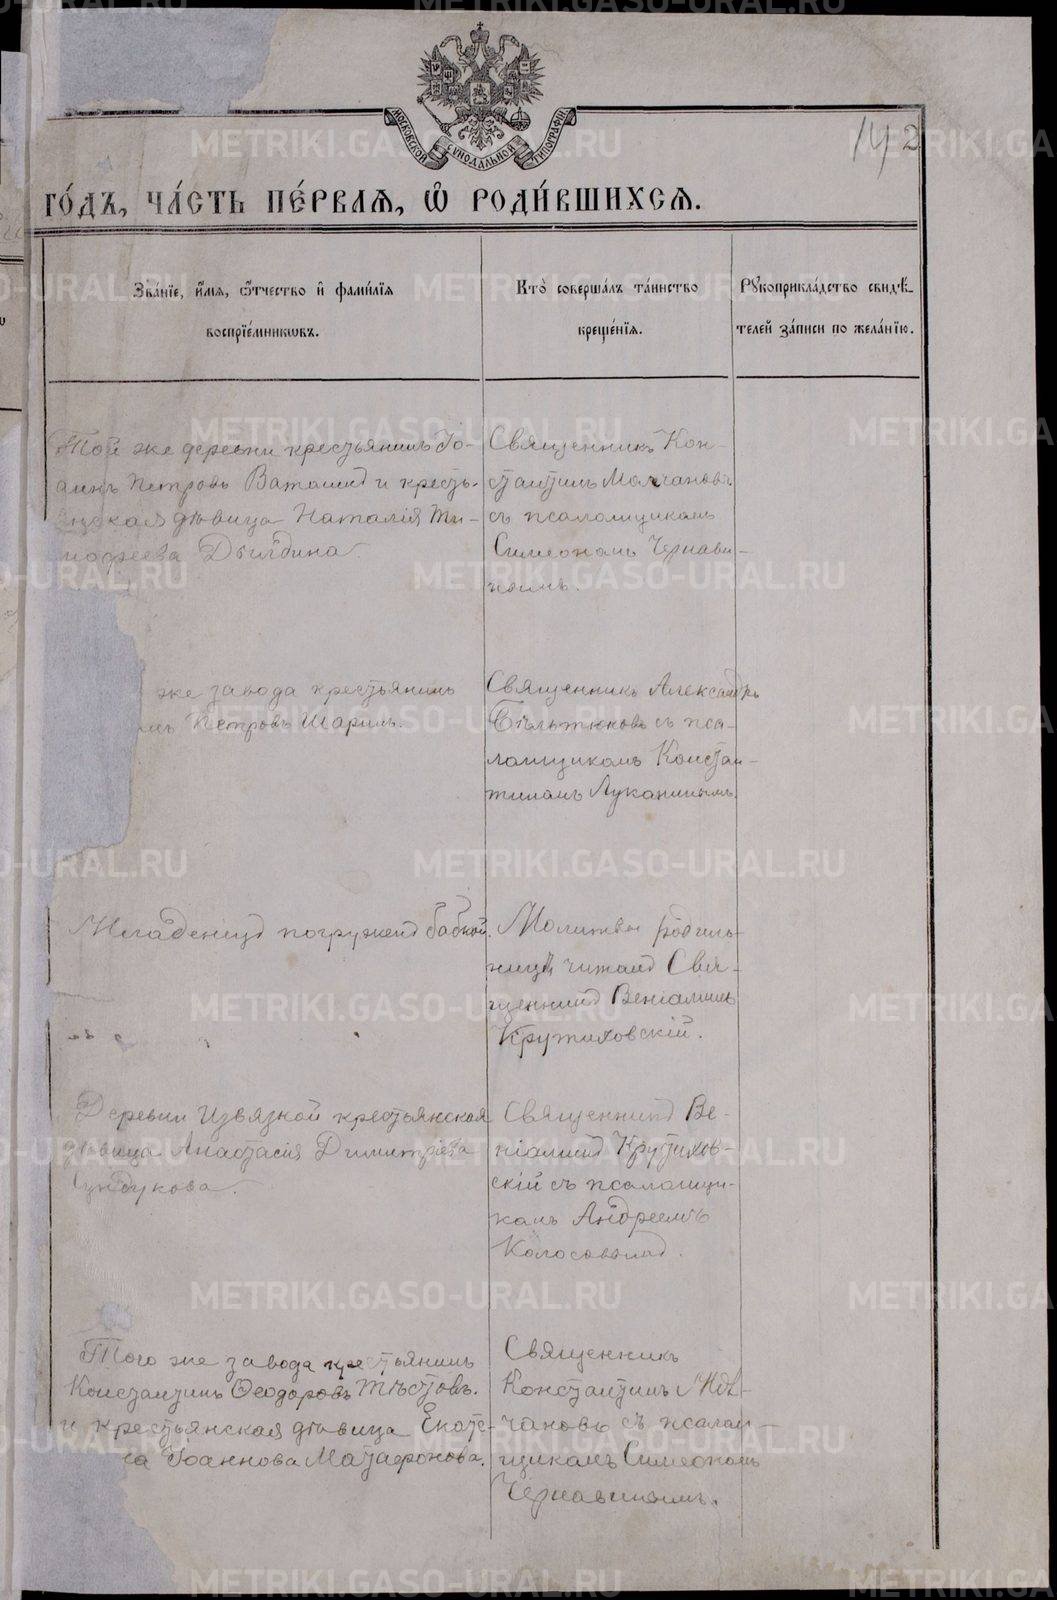 МОСКОВСКОЙ СѴНОДАЛЬНОЙ ТИПОГРАФІИ
142
ГО́ДЪ, ЧА́СТЬ ПЕ́РВАѦ, Ѡ҆ РОДИ́ВШИХСѦ.
Зва́нїе, и҆́мѧ, ѻ҆́тчество и҆ фами́лїѧ
воспрїе́мникѡвъ.
Кто̀ соверша́лъ та́инство
креще́нїѧ.
Рꙋкоприкла́дство свидѣ́-
телей за́писи по жела́нїю.
Той же деревни крестьянинъ Іо-
аннъ Петровъ и кресть-
янская дѣвица Наталія Ти-
мофеева Дылдина.
Священникъ Кон-
стантинъ Молчановъ
съ псаломщикомъ
Симеономъ Чернави-
нымъ.
же завода крестьянинъ
Петровъ Шаринъ.
Священникъ Александръ
Бѣльтюковъ съ пса-
ломщикомъ Констан-
тиномъ Луканинымъ.
Младенецъ погруженъ бабкой.
Молитвы родиль-
ницѣ читалъ Свя-
щенникъ Веніаминъ
Крутиховскій.
Деревни Извязной крестьянская
дѣвица Анастасія Димитріева
Сундукова.
Священникъ Ве-
ніаминъ Крутихов-
скій съ псаломщи-
комъ Андреемъ
Колосовымъ.
Того же завода крестьянинъ
Константинъ Ѳеодоровъ Тѣстовъ.
и крестьянская дѣвица Екате-
на Іоаннова Матафонова.
Священникъ
Константинъ Мол-
чановъ съ псалом-
щикомъ Симеономъ
Чернавинымъ.
METRIKI.GASO-URAL.RU